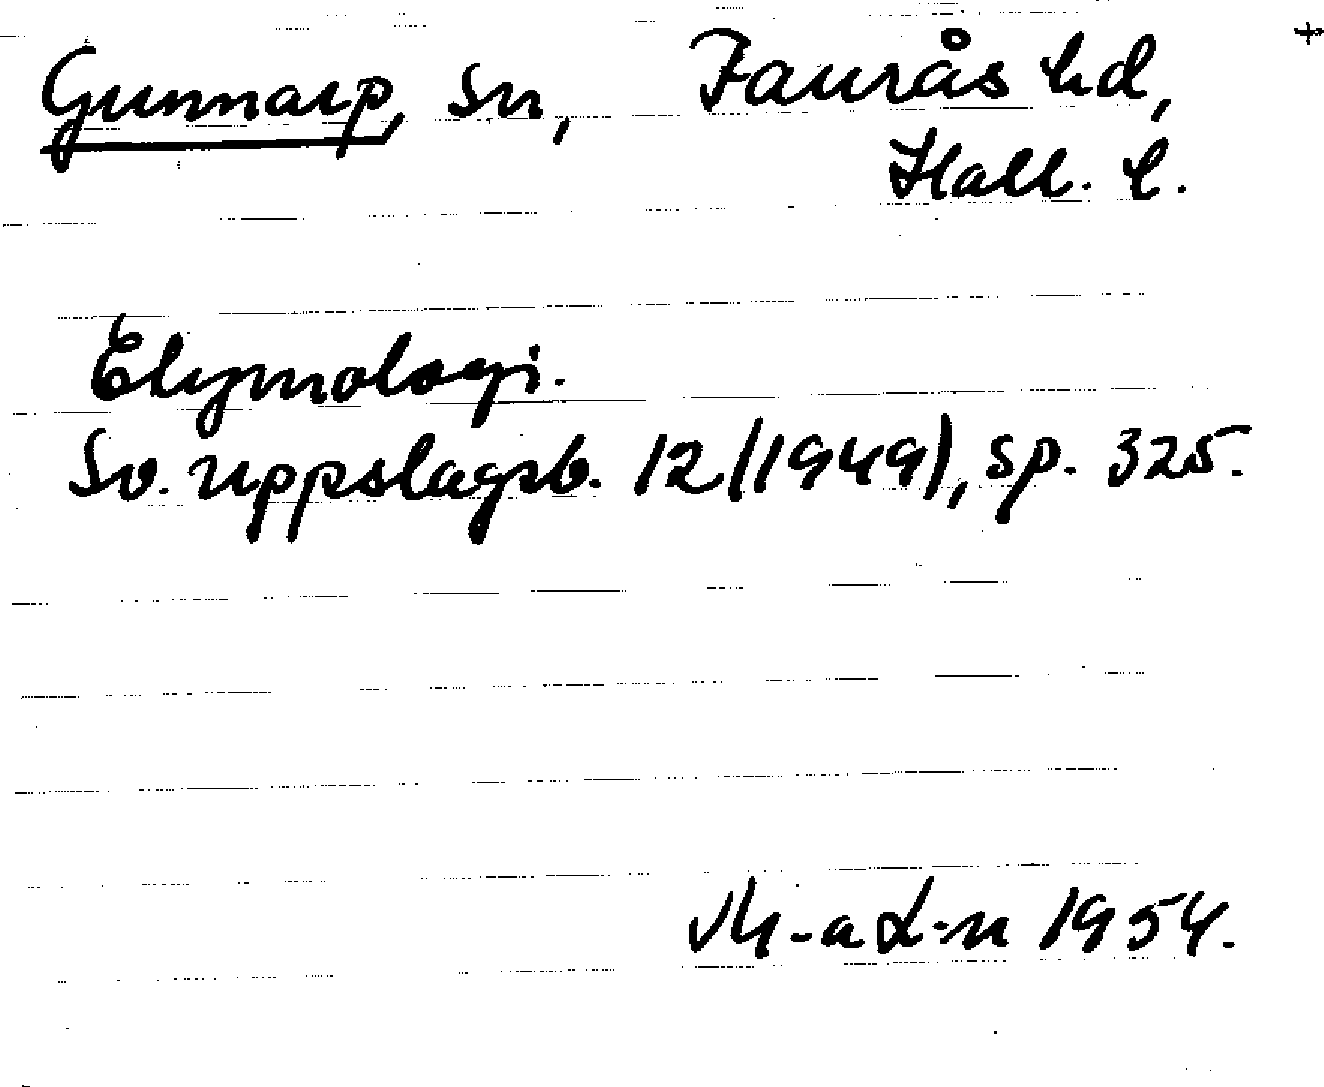 Gunnarp, Sn, Faurås hd, +
Hall. l.
Etymologi.
Sv. uppslagsb. 12 (1949), sp. 325.
M-a L-n 1954.